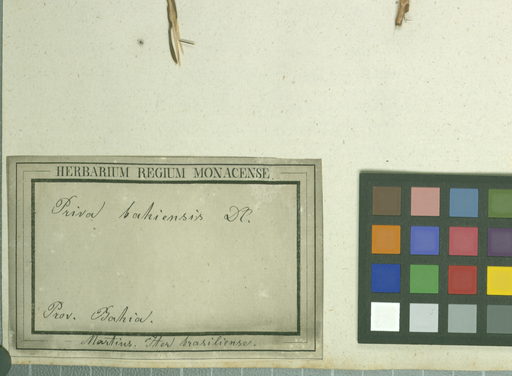 HERBARIUM REGIUM MONACENSE.
Priva bahiensis DC.
Prov. Bahia.
Martius. Iter brasiliense.